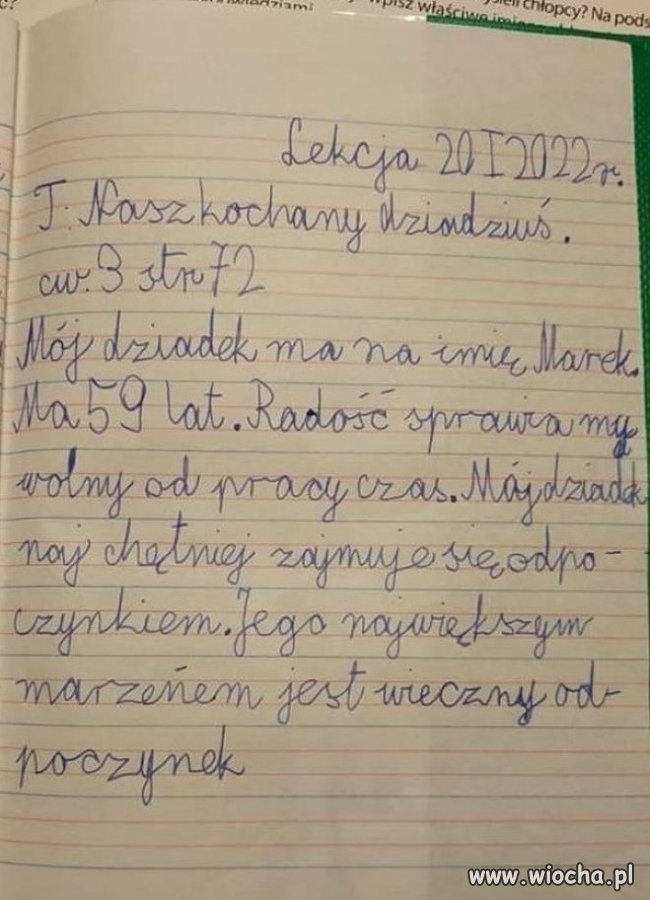 wpisz właściwe imiona
chłopcy? Na pods
Lekcja 20 I 2022 r.
T: Nasz kochany dziadziuś.
ćw. 3 str 72
Mój dziadek ma na imię Marek.
Ma 59 lat. Radość sprawia my
wolny od pracy czas. Mój dziadek
naj chętniej zajmuje się odpo-
czynkiem. Jego największym
marzeńem jest wieczny od-
poczynek
www.wiocha.pl